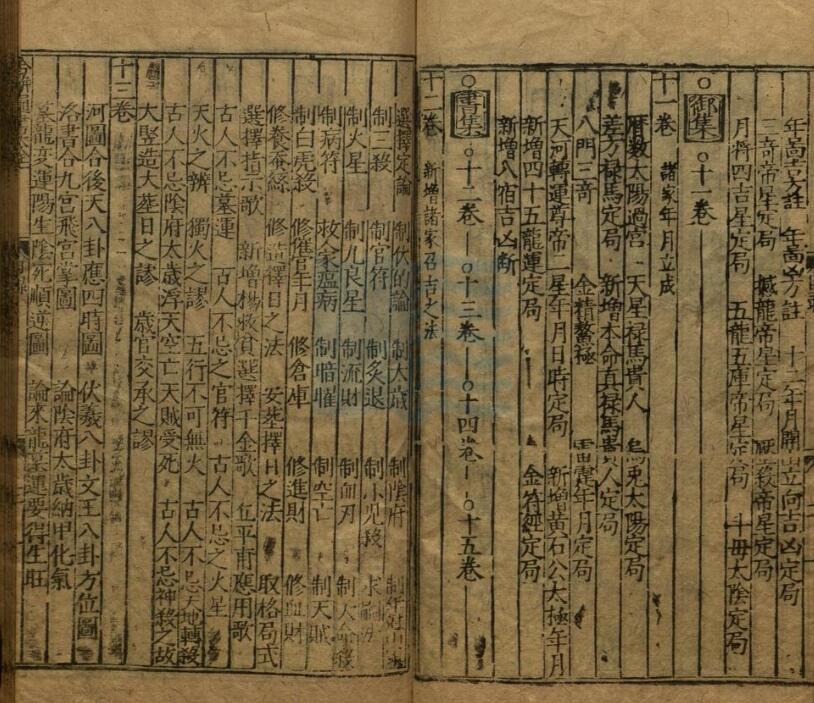 年啚吉方註　年啚凶方註　十二年月開山立向吉凶定局
三奇帝星定局　撼龍帝星定局　殺帝星定局
月將四吉星定局　五龍五庫帝星定局　斗母太陰定局
○御集○十一卷
十一卷　諸家年月立成
曆数太陽過宮　天星禄馬貴人　烏兎太陽定局
差方禄馬定局　新增本命真禄馬貴人定局
八門三奇　金精鰲極　雷霆年月定局
天河轉運尊帝二星年月日時定局　新增黄石公太極年月
新增四十五龍運定局　金符經定局
新增八宿吉凶断
○書集○十二卷－○十三卷－○十四卷－○十五卷
十二卷　新增諸家召吉之法
選擇定論　制伏的論　制大歳　制陰府
制三殺　制官符　制炙退　制小児殺
制火星　制九良星　制流財　制血刃
制病符　救家瘟病　制暗曜　制空亡　制天賊
制白虎殺　修催官年月　修倉庫　修進財　修血財
修養蚕絲　修造擇日之法　安塟擇日之法　取格局式
選擇指示歌　新增楊救貧選擇千金歌　伍平甫應用歌
古人不忌墓運　古人不忌之官符　古人不忌之火星
天火之辨　獨火之謬　五行不可無火　古人不忌天地轉殺
古人不忌陰府太歲浮天空亡天賊受死　古人不忌神殺之故
大竪造大塟日之謬　歳官交承之謬
十三卷
河圖合後天八卦應四時圖　伏羲八卦文王八卦方位圖
洛書合九宮飛宮掌圖　論陰府太歲納甲化氣
墓龍変運陽生陰死順逆圖　論來龍墓運要得生旺